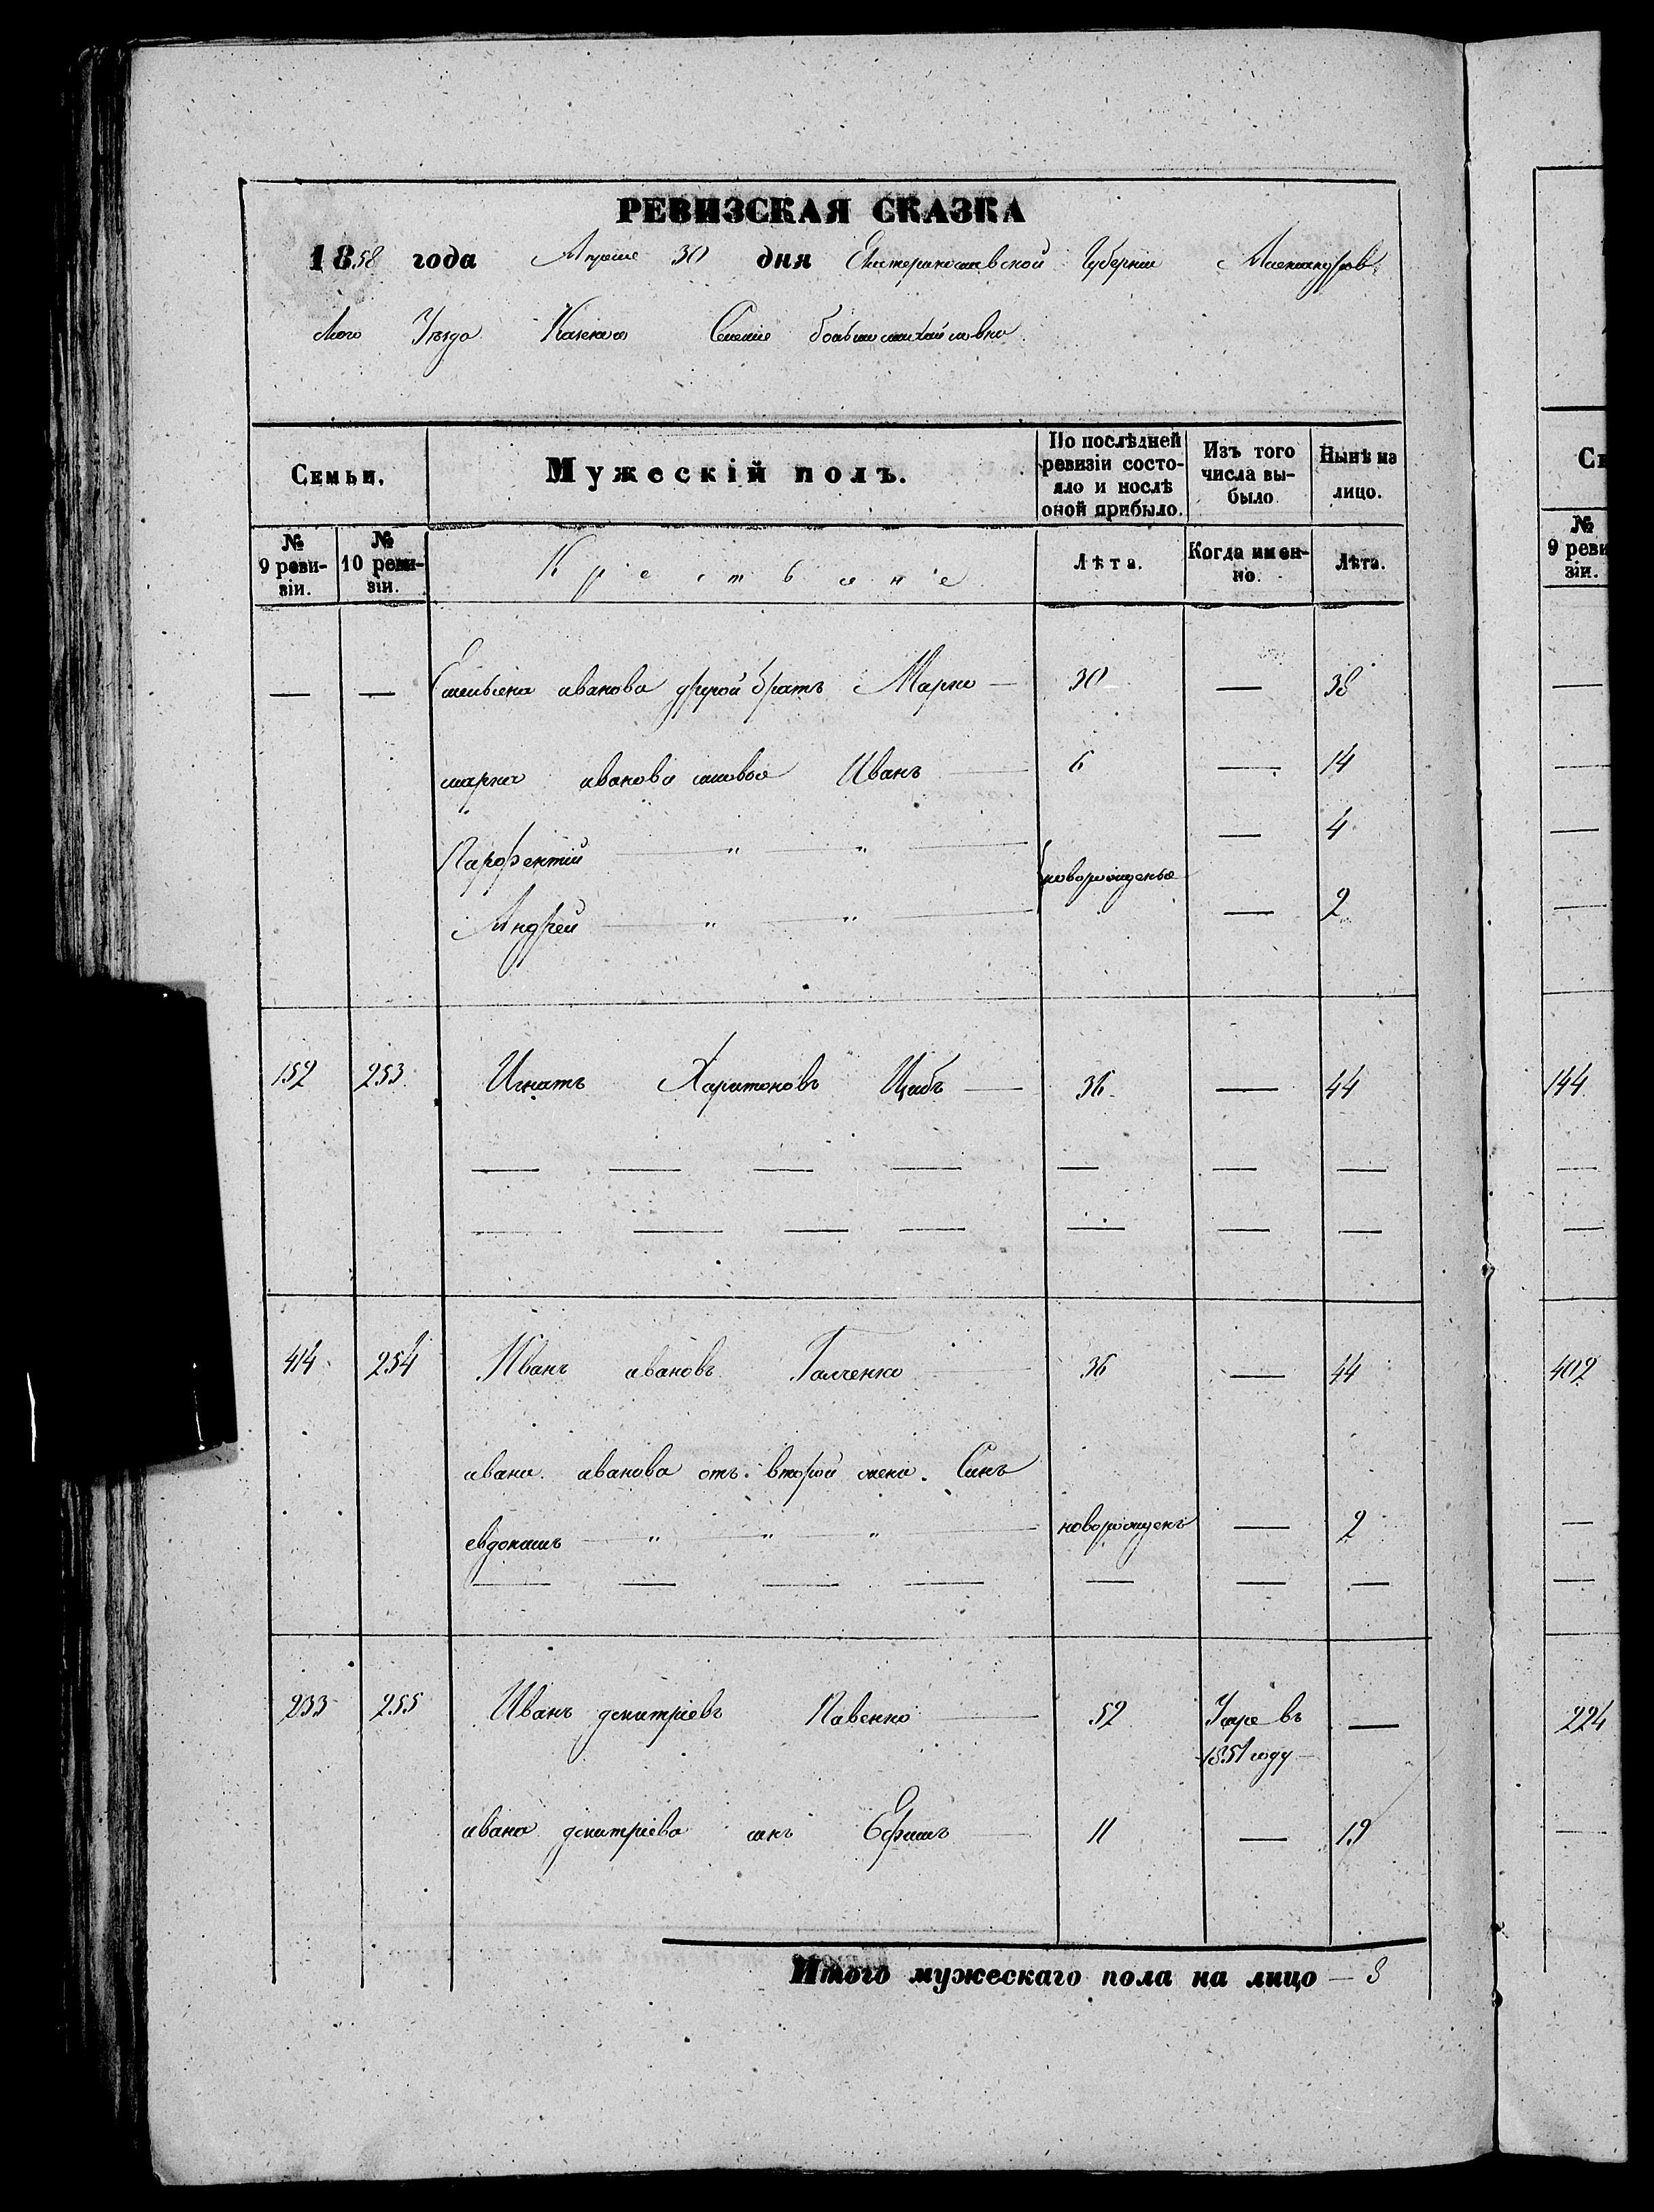 РЕВИЗСКАЯ СКАЗКА
1858 года Апреля 30 дня Екатеринославской Губернии Александров-
ского Уезда Казенного Селения большемихайловки
Семьи. Мужескій полъ. По послѣдней ревизіи состо-яло и послѣ оной прибыло. Изъ того числа вы-было Нынѣ на лицо.
№ 9 реви-зіи. № 10 реви-зіи. Крестьяне Лѣта. Когда имен-но. Лѣта.
— — Емельяна иванова другой братъ Марко — 30 — 38
марка иванова сыновья Иванъ — 6 — 14
Парфентий — " — " — новорожденые — 4
Андрей — " — " — — 2
152 253 Игнатъ Харитоновъ Цыбъ — 36 — 44
414 254 Иванъ ивановъ Галченко — 36 — 44
ивана иванова отъ второй жени Синъ
евдокимъ — " — " — " — новорожденъ — 2
233 255 Иванъ дмитріевъ Павенко — 52 Умре въ —
1851 году
ивана дмитріева синъ Ефимъ — 11 — 19
Итого мужескаго пола на лицо — 8
Се
№
9 реви
зіи.
144
402
224